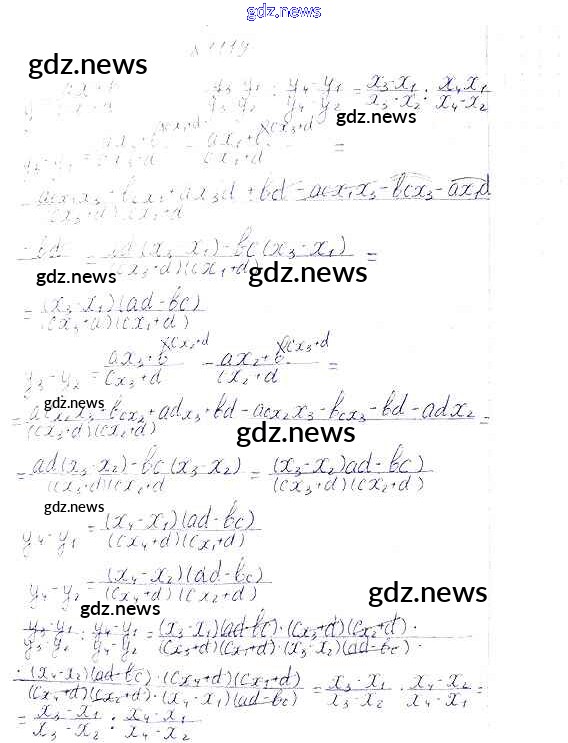 gdz.news
N 1119
gdz.news
y₃-y₁/y₃-y₂ : y₄-y₁/y₄-y₂ = x₃-x₁/x₃-x₂ : x₄-x₁/x₄-x₂
gdz.news
y₃-y₁ = ax₃+b/cx₃+d - ax₁+b/cx₁+d =
acx₁x₃+bcx₁+ax₃d+bd-acx₁x₃-bcx₃-ax₁d
(cx₃+d)(cx₁+d)
-bd = ad(x₃-x₁)-bc(x₃-x₁)/(cx₃+d)(cx₁+d) =
gdz.news gdz.news
= (x₃-x₁)(ad-bc)/(cx₃+d)(cx₁+d)
y₃-y₂ = ax₃+b/cx₃+d - ax₂+b/cx₂+d =
gdz.news
= acx₂x₃+bcx₂+adx₃+bd-acx₂x₃-bcx₃-bd-adx₂/(cx₃+d)(cx₂+d) =
gdz.news
= ad(x₃-x₂)-bc(x₃-x₂)/(cx₃+d)(cx₂+d) = (x₃-x₂)ad-bc)/(cx₃+d)(cx₂+d)
gdz.news
y₄-y₁ = (x₄-x₁)(ad-bc)/(cx₄+d)(cx₁+d)
y₄-y₂ = (x₄-x₂)(ad-bc)/(cx₄+d)(cx₂+d)
gdz.news gdz.news
y₃-y₁/y₃-y₂ : y₄-y₁/y₄-y₂ = (x₃-x₁)(ad-bc)·(cx₃+d)(cx₂+d)·/(cx₃+d)(cx₁+d)·(x₃-x₂)(ad-bc)·
· (x₄-x₂)(ad-bc)·(cx₄+d)(cx₁+d)/(cx₄+d)(cx₂+d)·(x₄-x₁)(ad-bc) = x₃-x₁/x₃-x₂ · x₄-x₂/x₄-x₁ =
= x₃-x₁/x₃-x₂ : x₄-x₁/x₄-x₂